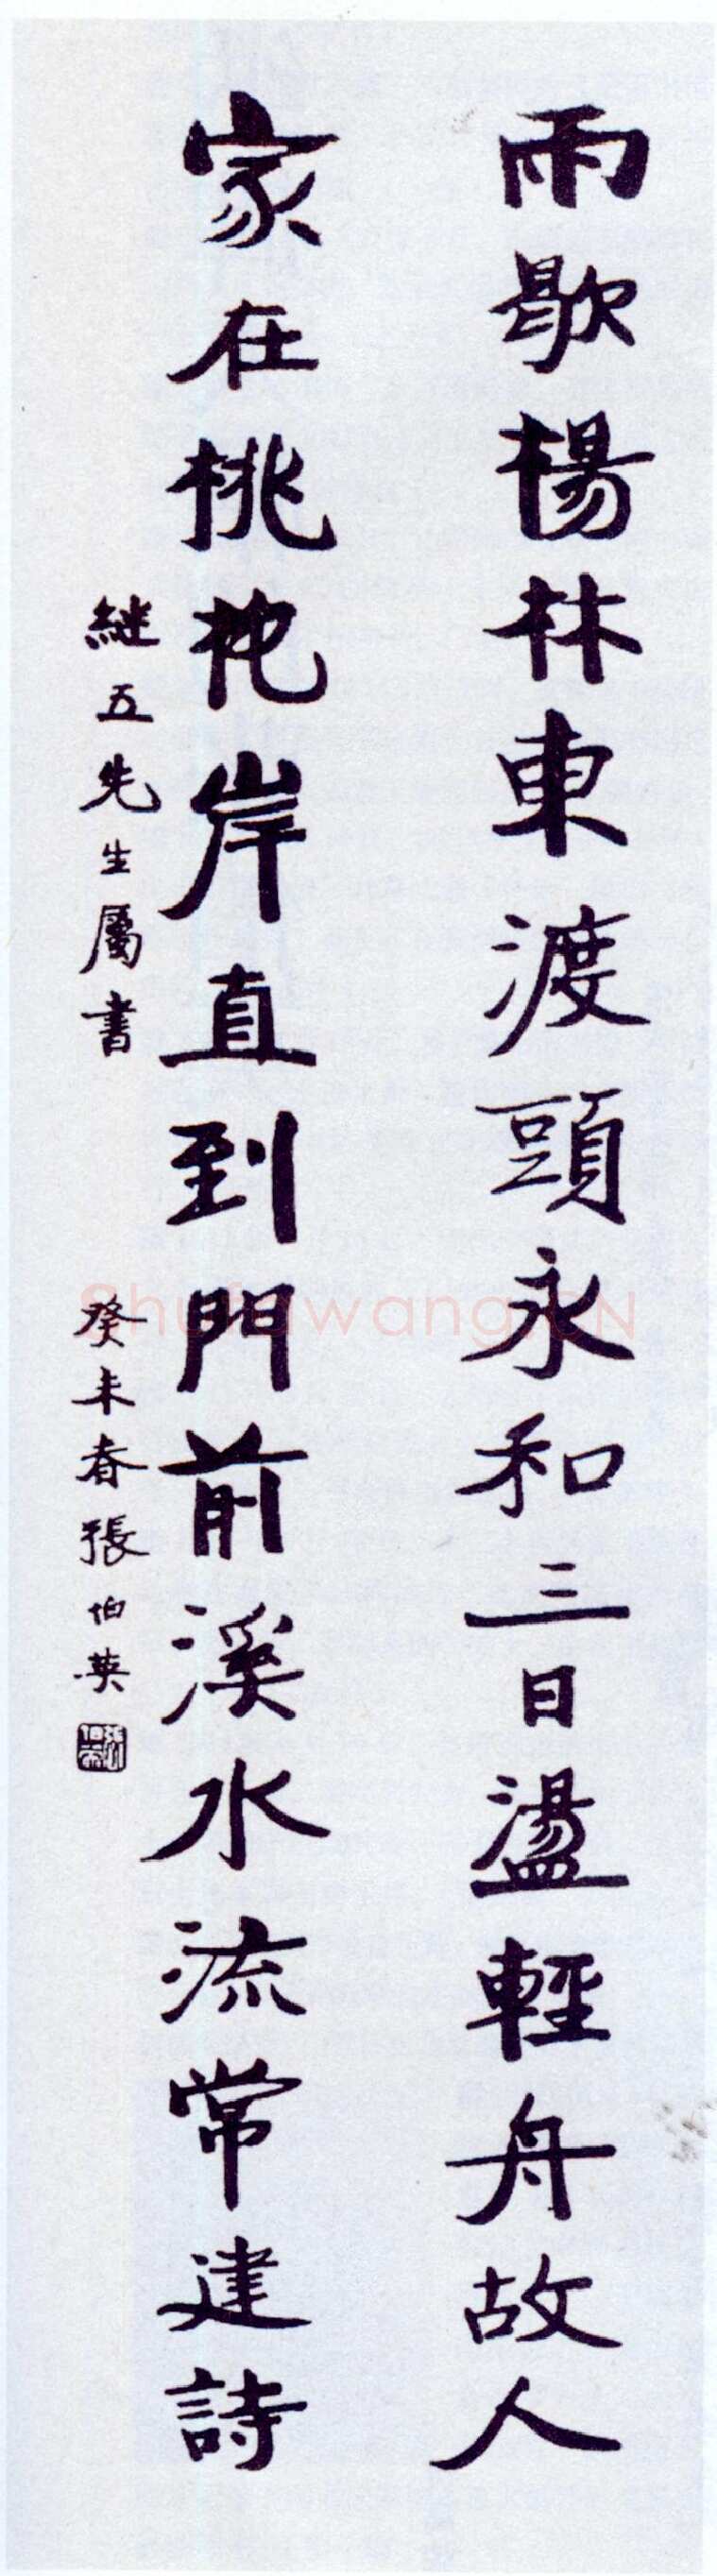 雨歇楊林東渡頭永和三日盪輕舟故人
家在桃花岸直到門前溪水流常建詩
継五先生屬書
癸未春張伯英
張伯英
Shufawang.CN